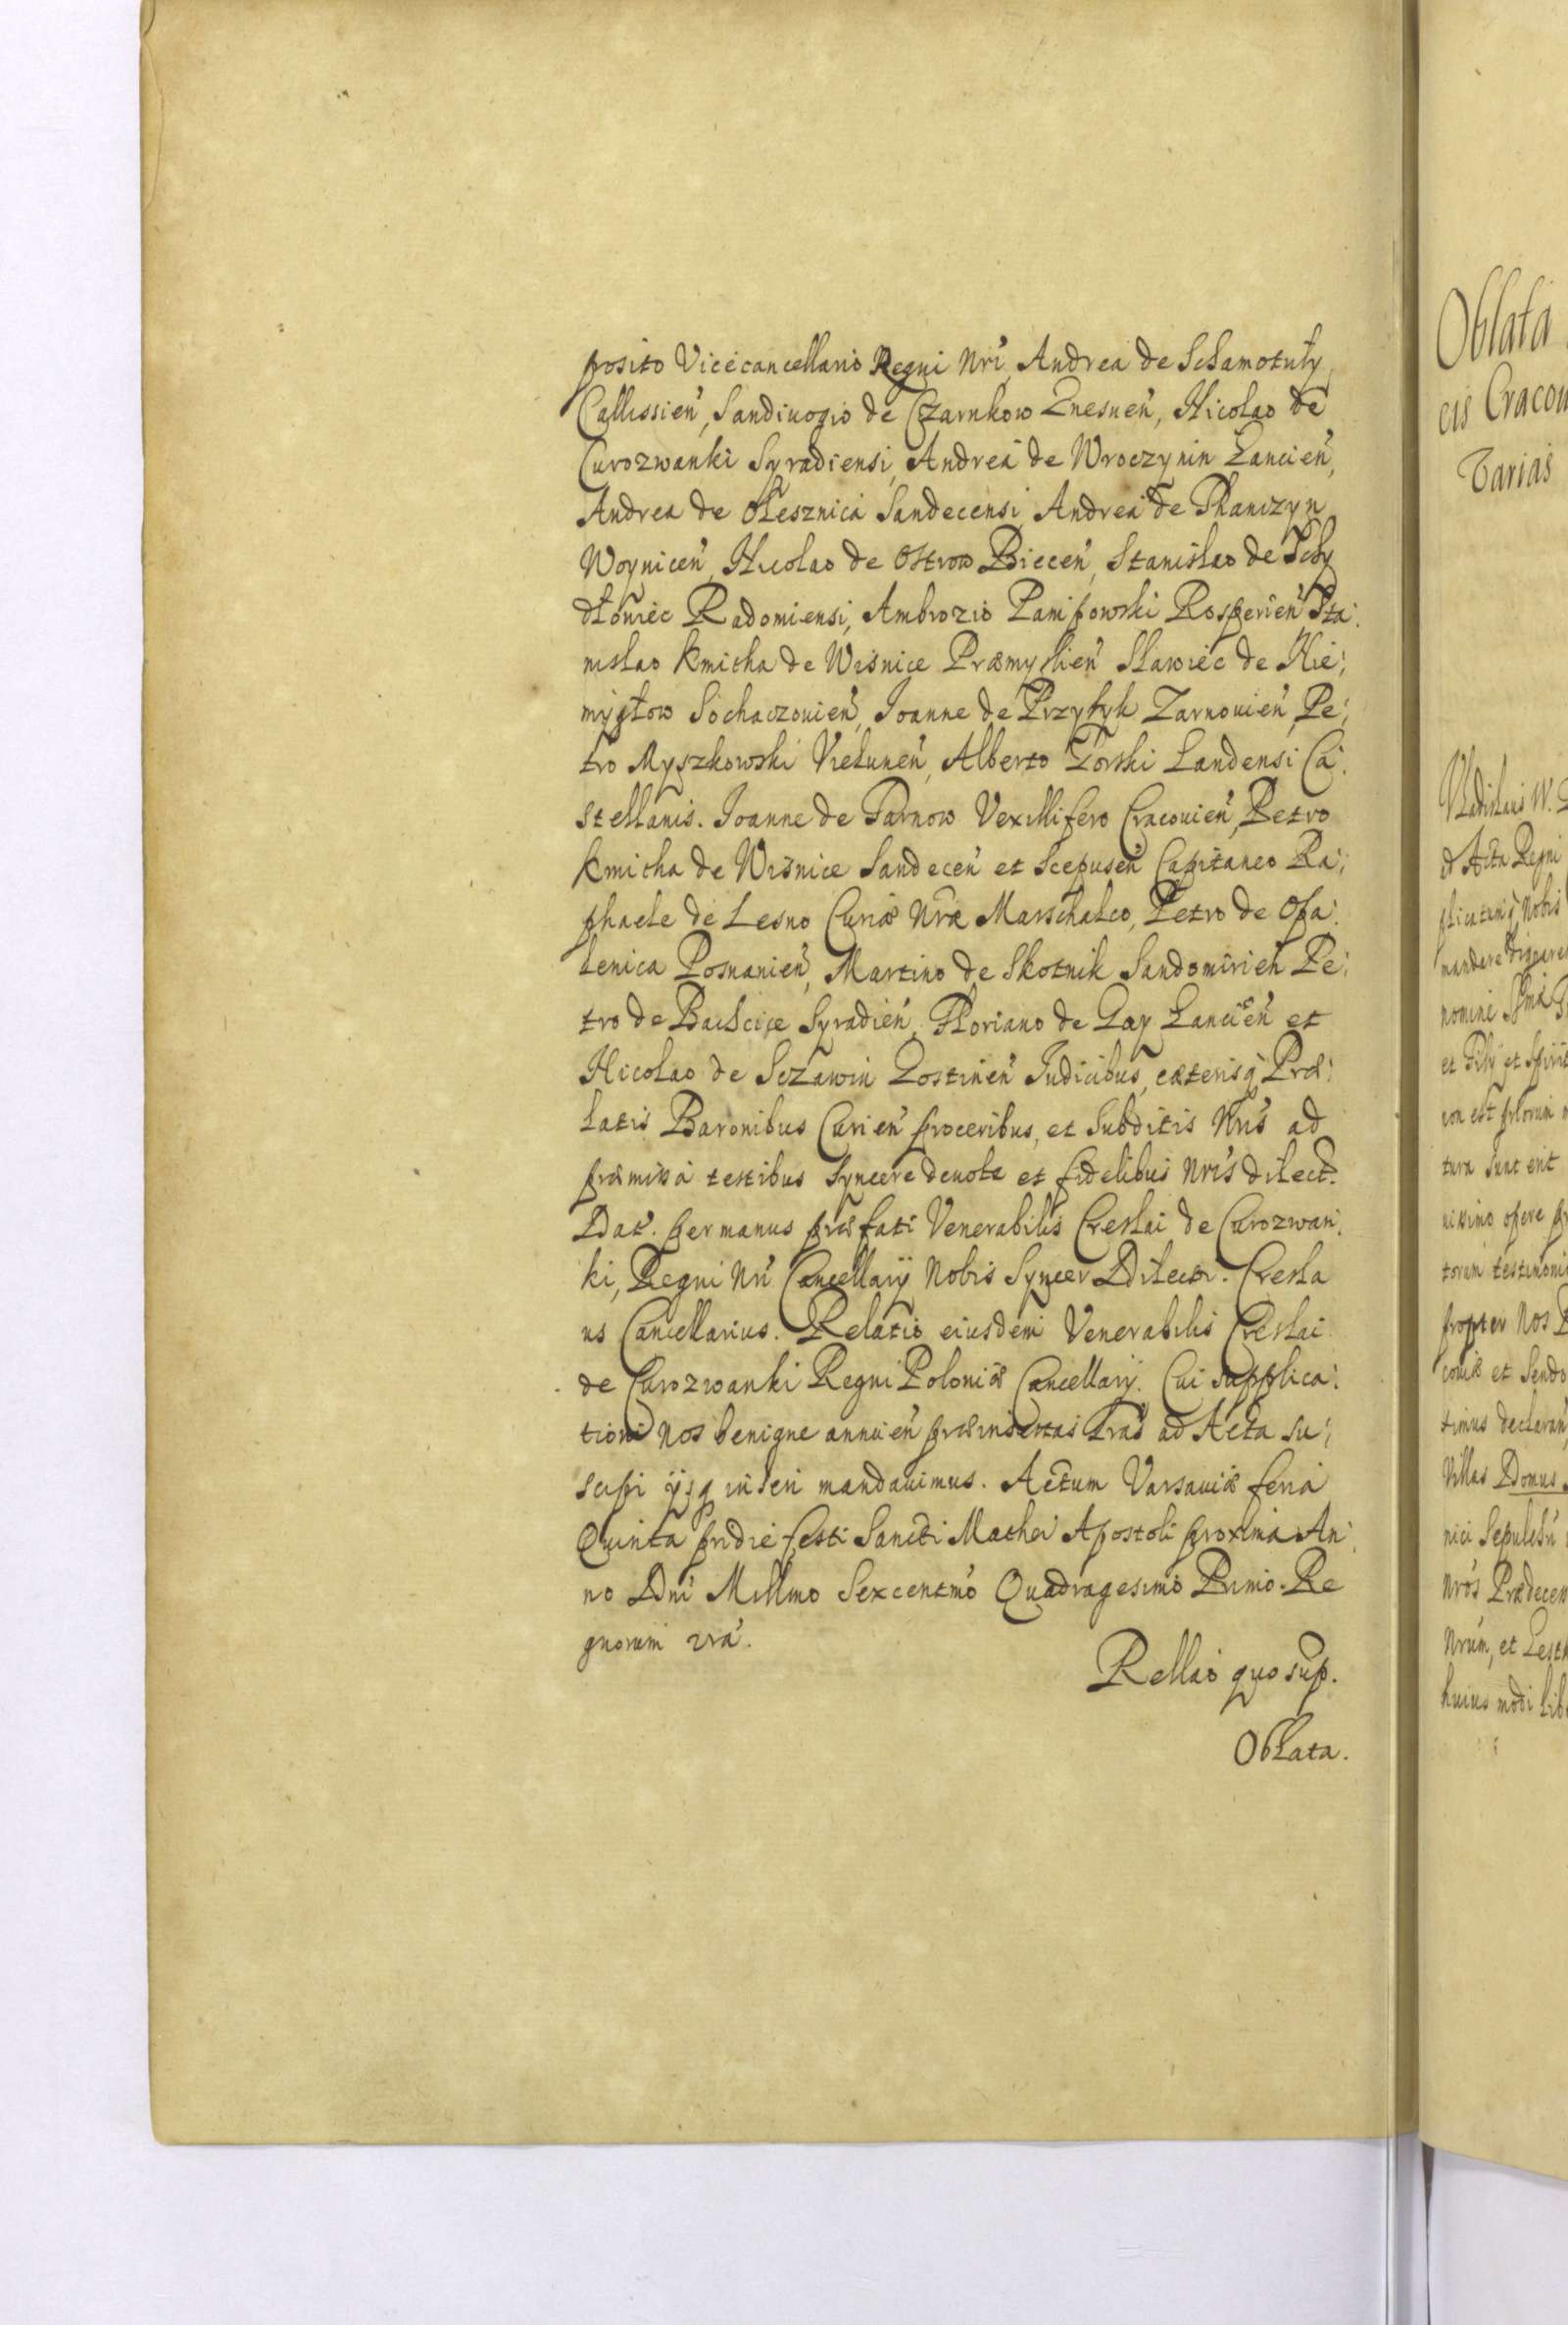 posito Vicecancellario Regni Nri, Andrea de Schamotuly
Callissien, Sandiuogio de Czarnkow Gnesnen, Nicolao de
Curozwanki Syradiensi, Andrea de Wroczynin Lancien,
Andrea de Olesznica Sandecensi, Andrea de Thanczyn
Woynicen, Nicolao de Ostrow Biecen, Stanislao de Schy
dlowiec Radomiensi, Ambrozio Pampowski Rosperien Sta:
nislao Kmitha de Wisnice Præmyslien Slawiec de Nie:
myglow Sochaczouien, Joanne de Przytyk Zarnouien, Pe:
tro Myszkowski Vielunen, Alberto Gorski Landensi Ca:
stellanis. Joanne de Tarnow Vexillifero Cracouien, Petro
Kmitha de Wisnice Sandecen et Scepusen Capitaneo Ra:
phaele de Lesno Curiæ Nræ Marschalco, Petro de Opa:
lenica Posnanien, Martino de Skotnik Sandomirien Pe:
tro de Syradien, Floriano de Gay Lancien et
Nicolao de Sczawin Gostinen Judicibus, cæterisq Præ:
latis Baronibus Curien proceribus, et Subditis Nris ad
præmissa testibus Syncere deuote et fidelibus Nris dilect.
Dat. per manus præfati Venerabilis Creslai de Curozwan:
ki, Regni Nri Cancellarÿ Nobis Syncer Dilecti. Cresla
us Cancellarius. Relatio eiusdem Venerabilis Creslai
de Curozwanki Regni Poloniæ Cancellarÿ. Cui supplica:
tioni nos benigne annuen præinsertas Lras ad Acta su:
scipi ÿsq inseri mandauimus. Actum Varsauiæ feria
Quinta pridie festi Sancti Mathei Apostoli proxima An:
no Dni Millmo Sexcentmo Quadragesimo Primo. Re
gnorum vra.
Rellao quo sup.
Oblata.
Oblata
cis Cracou
Varias
Vladislaus W.
et Acta Regni
plicatumq Nobis
mandare
nomine
et Filÿ et Spirit
tura sunt erit
nissimo opere
torum testimoni
propter Nos
couiæ et Sendo
timus declaran
Villas Domus
nici Sepulchri
Nros Prædecen
Nrum, et Lest
huius modi lib